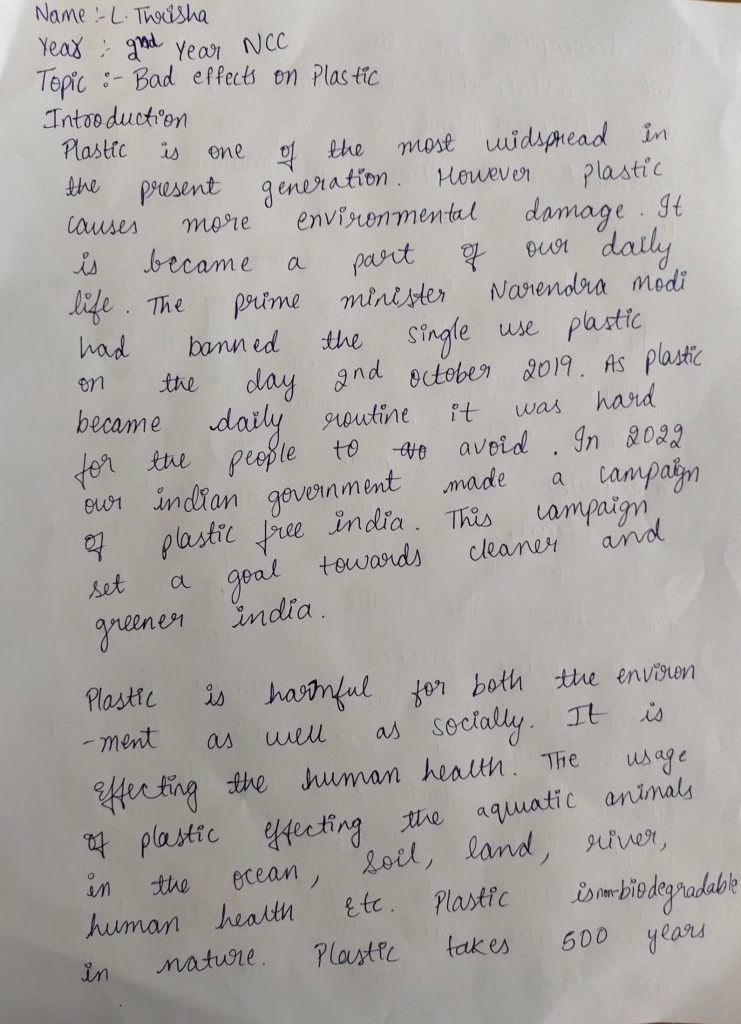 Name :- L. Thrisha
Year :- 2nd Year NCC
Topic :- Bad effects on Plastic
Introduction
Plastic is one of the most widspread in
the present generation. However plastic
causes more environmental damage. It
is became a part of our daily
life. The prime minister Narendra Modi
had banned the single use plastic
on the day 2nd october 2019. As plastic
became daily routine it was hard
for the people to avoid. In 2022
our indian government made a campaign
of plastic free india. This campaign
set a goal towards cleaner and
greener india.
Plastic is harmful for both the environ
-ment as well as socially. It is
effecting the human health. The usage
of plastic effecting the aquatic animals
in the ocean, soil, land, river,
human health etc. Plastic is non-biodegradable
in nature. Plastic takes 500 years